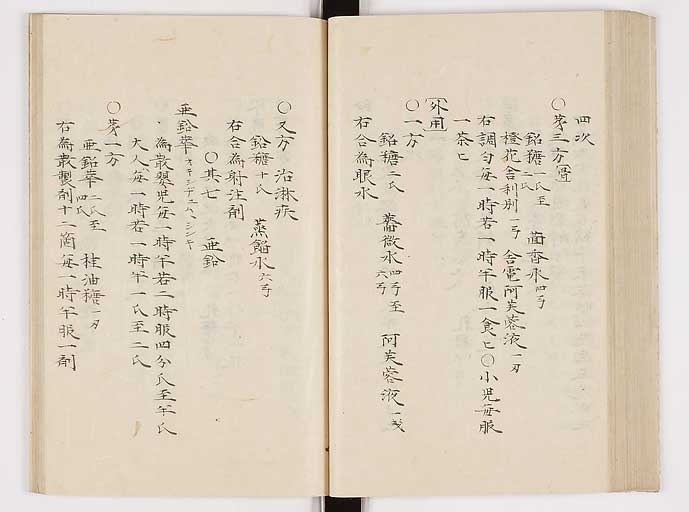 四次
〇第三方
鉛糖 一氏至二氏 茴香水 四弓
橙花舎利別 一弓 舎電阿芙蓉液 一刃
右調匀毎一時若一時半服一食匕〇小児毎服
一茶匕
外用
〇一方
鉛糖 二氏 薔薇水 四弓至六弓 阿芙蓉液 一戔
右合為眼水
〇又方 治淋疾
鉛糖 十氏 蒸餾水 六弓
右合為射注剤
〇其七 亜鉛
亜鉛華 オキシデユム、シンキ
為散嬰児毎一時半若二時服四分氏至半氏
大人毎一時若一時半一氏至二氏
〇第一方
亜鉛華 二氏至四氏 桂油糖 一刃
右為散製剤十二箇毎一時半服一剤